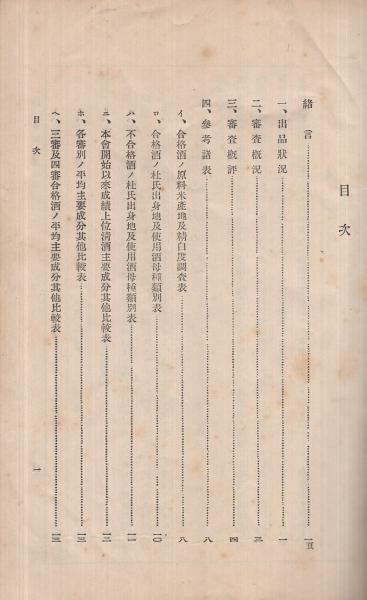 目次
緒言……一頁
一、出品狀況……一
二、審査槪況……三
三、審査槪評……四
四、參考諸表……八
イ、合格酒ノ原料米產地及精白度調査表……八
ロ、合格酒ノ杜氏出身地及使用酒母種類別表……一〇
ハ、不合格酒ノ杜氏出身地及使用酒母種類別表……一一
ニ、本會開始以來成績上位淸酒主要成分其他比較表……一二
ホ、各審別ノ平均主要成分其他比較表……一三
ヘ、三審及四審合格酒ノ平均主要成分其他比較表……一三
目次
一